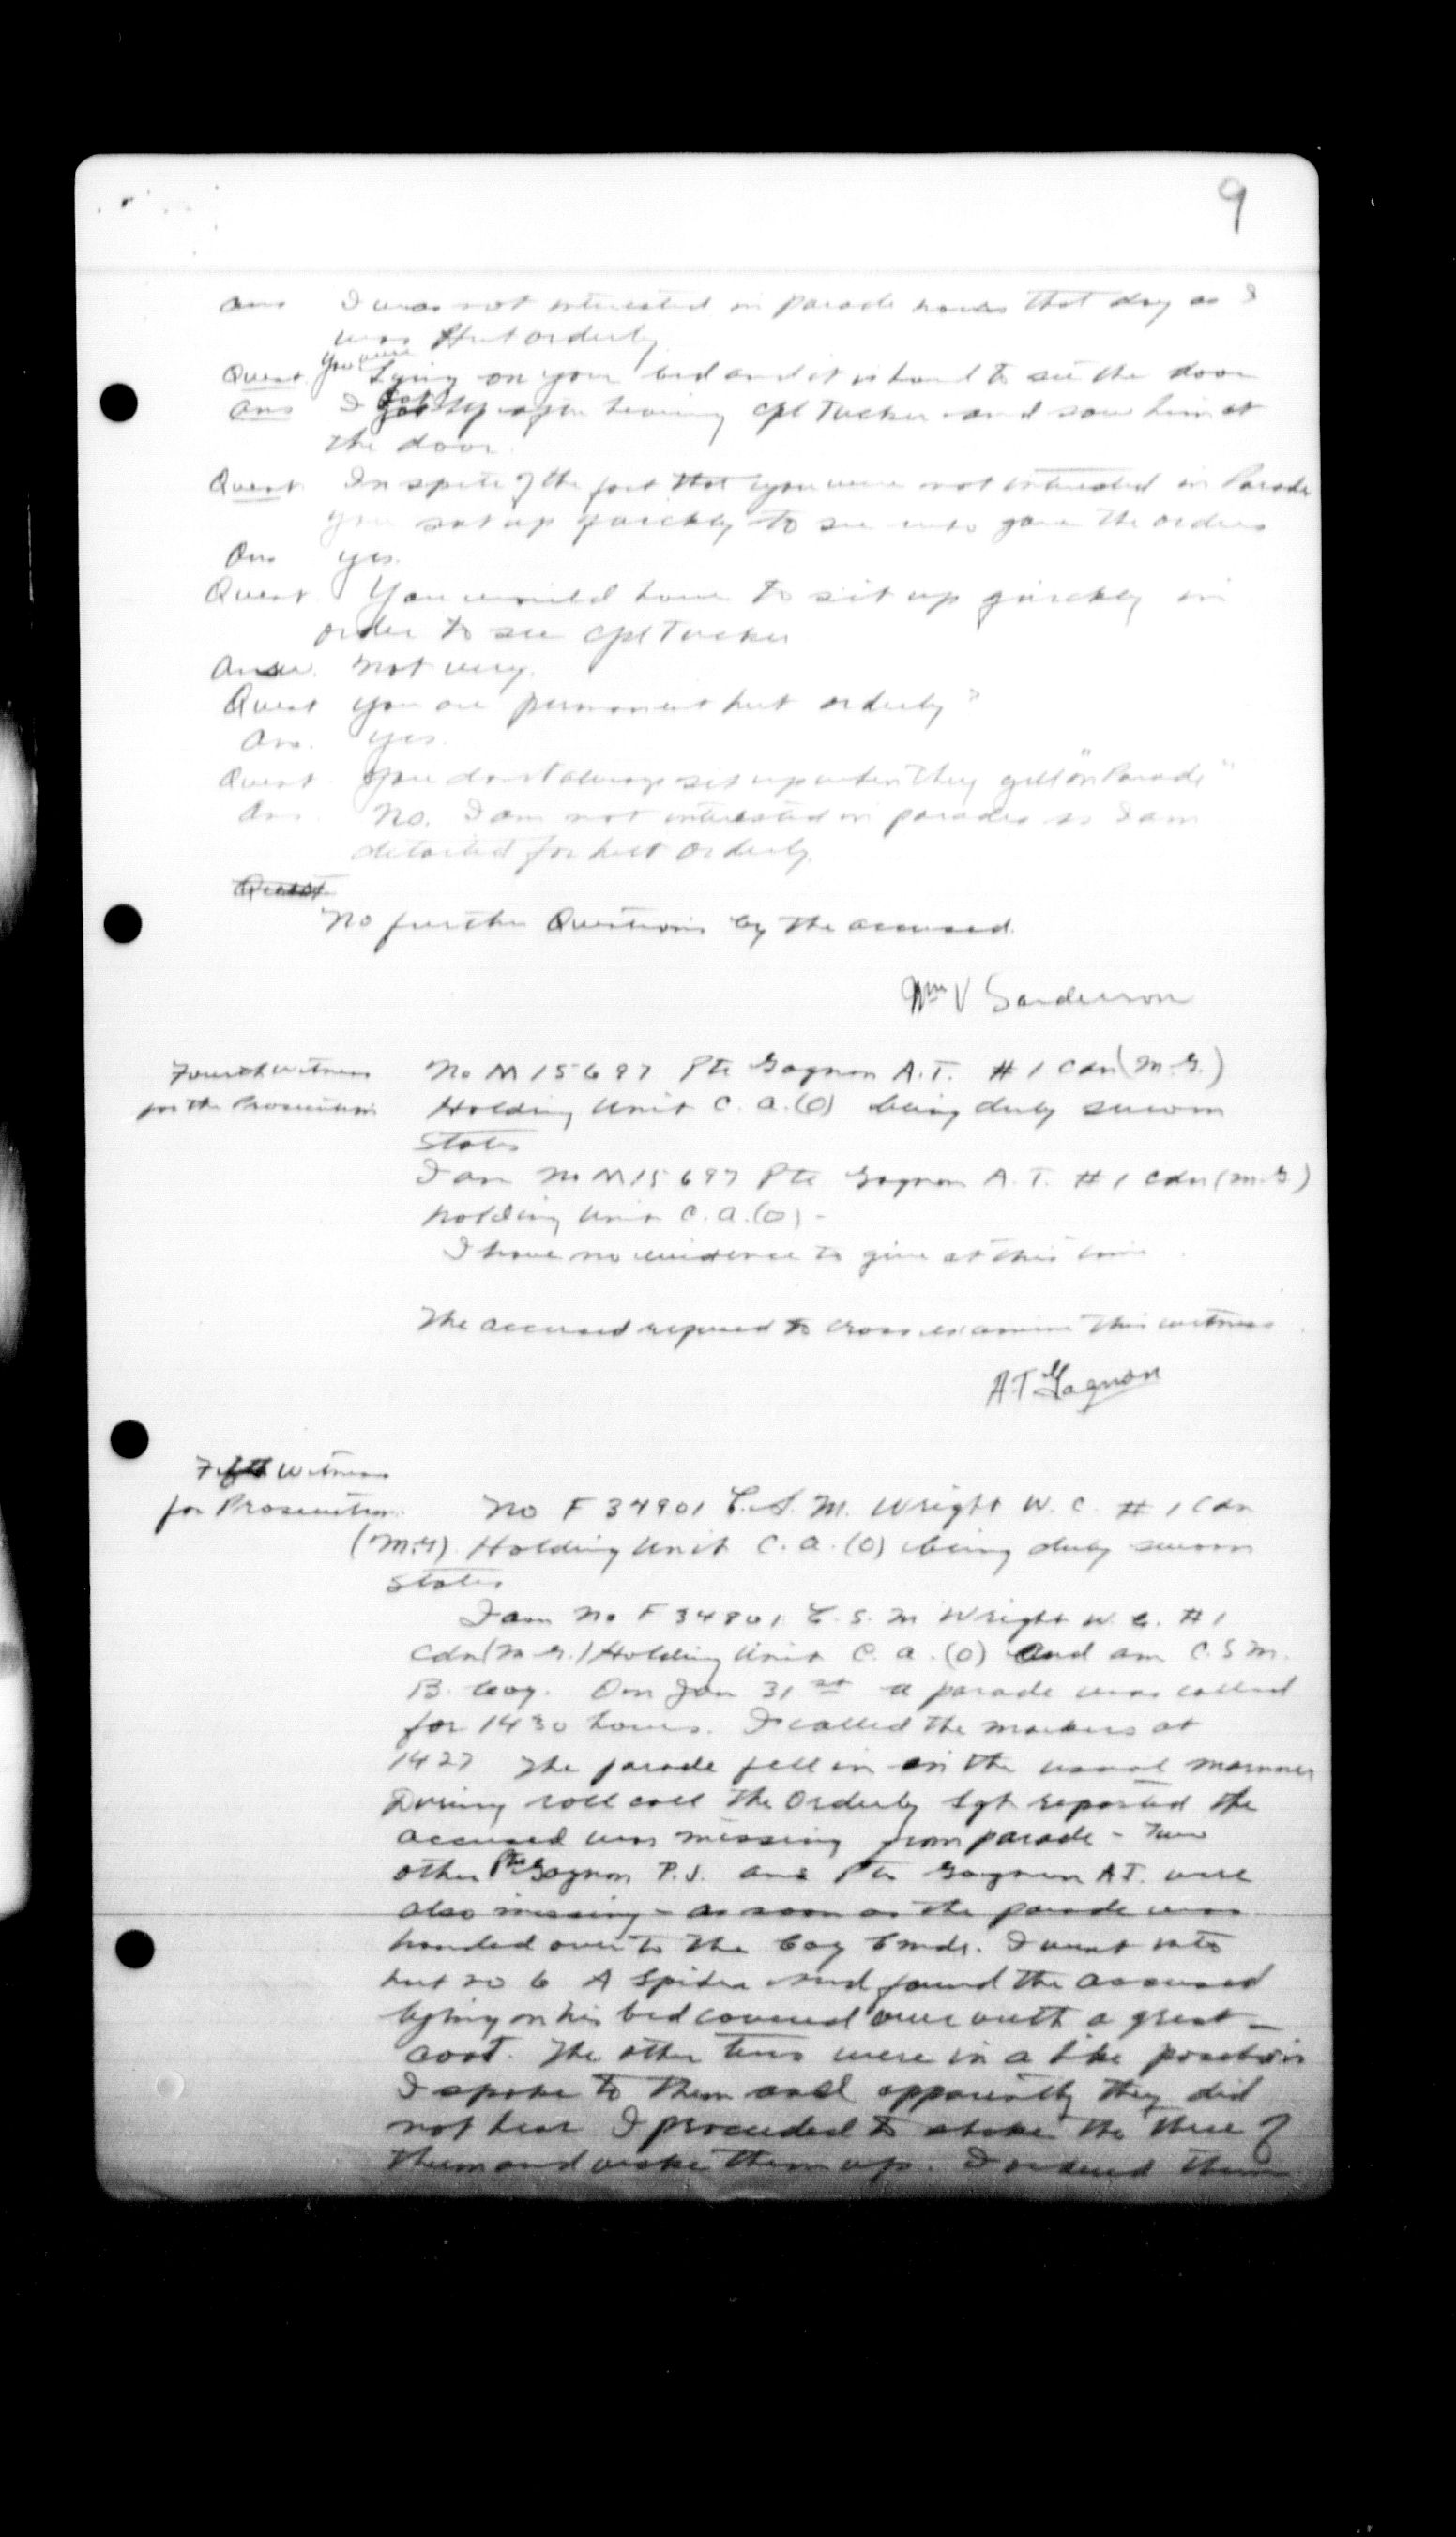 9
Ans I was not interested in parade hours that day as I
was Hut orderly
Quest you were Lying on your bed and it is hard to see the door
Ans I sat up after hearing Cpl Tucker and saw him at
the door.
Quest In spite of the fact that you were not interested in Parade
you sat up quickly to see who gave the orders
Ans yes.
Quest You would have to sit up quickly in
order to see Cpl Tucker
Answ. Not very.
Quest You are permanent hut orderly?
Ans. yes.
Quest You don't always sit up when they yell "on Parade"
Ans. No. I am not interested in parades as I am
detailed for hut orderly.
Quest
No further Questions by the accused.
Wm V Sanderson
Fourth witness No M 15697 Pte Gagnon A.T. #1 Cdn (M.G.)
for the Prosecution Holding Unit C.A.(O) being duly sworn
states
I am No M15697 Pte Gagnon A.T. #1 Cdn (M.G)
Holding Unit C.A.(O) -
I have no evidence to give at this time.
The accused refused to cross examine this witness.
A.T Gagnon
Fifth Witness
for Prosecution. No F 34901 C.S.M. Wright W.C. #1 Cdn
(M.G) Holding Unit C.A.(O) being duly sworn
states
I am No F 34901 C.S.M Wright W.C. #1
Cdn (M.G.) Holding Unit C.A.(O) and am C.S.M.
B. Coy. On Jan 31st a parade was called
for 1430 hours. I called the markers at
1427 The parade fell in in the usual manner
During roll call the Orderly Sgt reported the
accused was missing from parade - Two
other Pte Gagnon P.J. and Pte Gagnon A.T. were
also missing - as soon as the parade was
handed over to the Coy Cmdr. I went into
hut no 6 A Spider and found the accused
lying on his bed covered over with a great-
coat. The other two were in a like position
I spoke to them and apparently they did
not hear I proceeded to shake the three of
them and woke them up. I ordered them